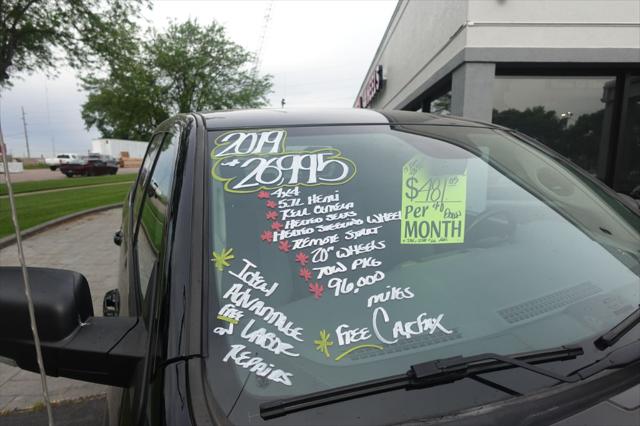 2019
$26,995
4x4
5.7L Hemi
Rear Camera
Heated Seats
Heated Steering Wheel
Remote Start
20" Wheels
Tow Pkg
96,000
miles
Free Carfax
Total
Advantage
Free Labor
on
Repairs
$481
Per $0 Down
MONTH
WHEELS